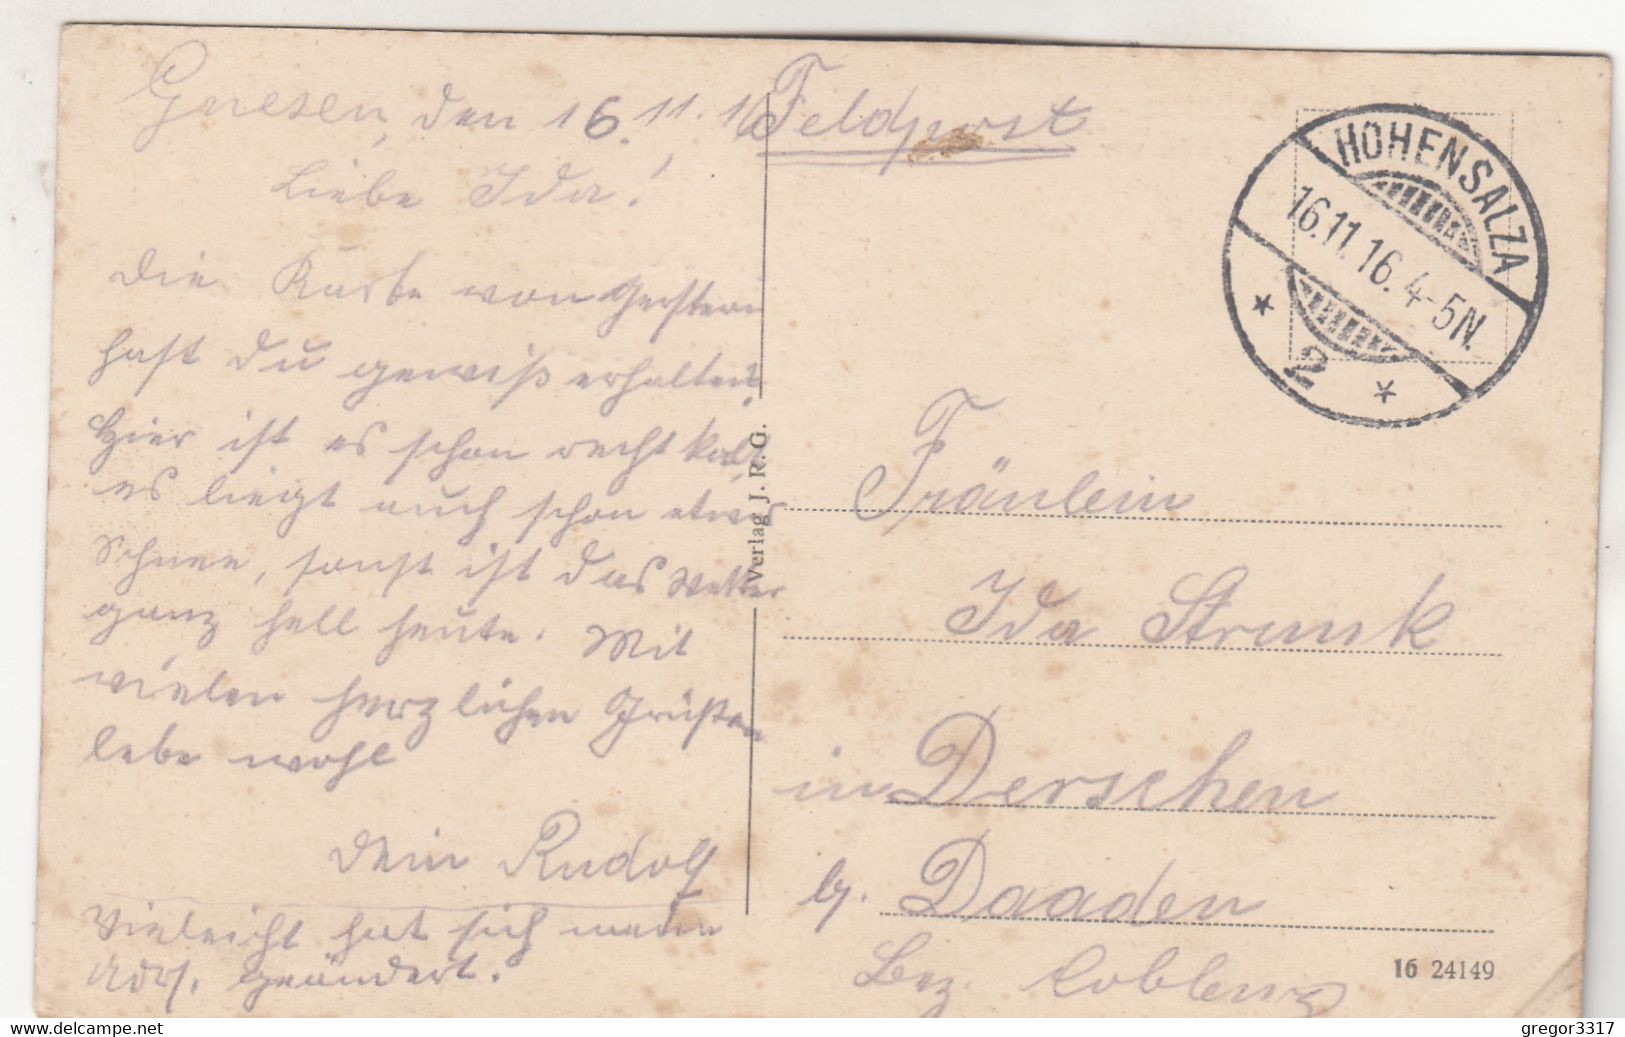 Gnesen, den 16.11.16
Liebe Ida!
Die Karte von gestern
hast Du gewiß erhalten.
Hier ist es schon recht kalt
es liegt auch schon etwas
Schnee, sonst ist das Wetter
ganz hell heute. Mit
vielen herzlichen Grüßen
lebe wohl
Dein Rudolf
Vielleicht hat sich meine
Adr. geändert.
Verlag J. R. G.
Feldpost
HOHENSALZA
16.11.16. 4-5N.
* 2 *
Fräulein
Ida Strunk
in Derschen
b/. Daaden
Bez. Coblenz
16 24149
www.delcampe.net
gregor3317